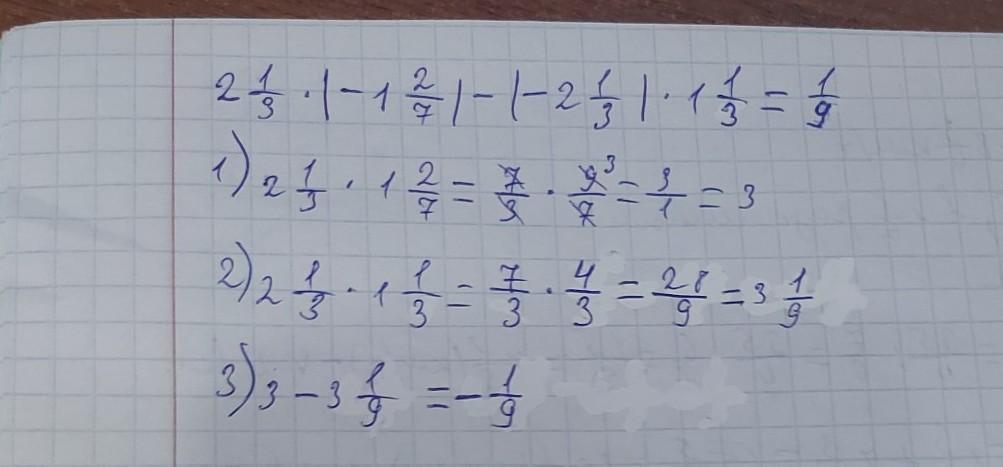 2 1/3 · |-1 2/7| - |-2 1/3| · 1 1/3 = 1/9
1) 2 1/3 · 1 2/7 = 7/3 · 9/7 ³ = 3/1 = 3
2) 2 1/3 · 1 1/3 = 7/3 · 4/3 = 28/9 = 3 1/9
3) 3 - 3 1/9 = - 1/9